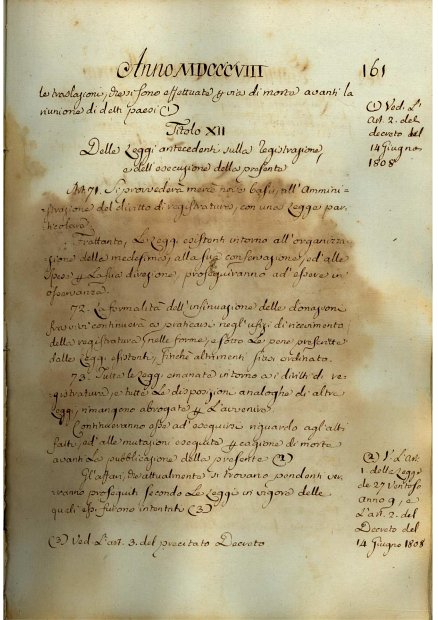 Anno MDCCCVIII
161
le traslazioni, che si sono effettuate per via di morte avanti la
riunione di detti paesi (1)
(1) Ved. L'
art. 2. del
decreto del
14 Giugno
1808
Titolo XII
Delle Leggi antecedenti sulla registrazione,
e dell'esecuzione della presente
Art. 71. Si provvederà
strazione del diritto di registratura, con una Legge par-
ticolare.
Frattanto, Le Leggi esistenti intorno all'organizza-
zione della medesima, alla sua conservazione, ed alle
spese per La sua direzione, proseguiranno ad essere in
osservanza.
72. La formalità dell'insinuazione delle donazioni
continuerà a praticarsi negl'ufizi di ricevimento
della registratura, nelle forme, e sotto Le pene prescritte
dalle Leggi esistenti, finchè altrimenti sia ordinato.
73. Tutte Le Leggi emanate intorno ai diritti di re-
gistratura, e tutte Le disposizioni analoghe di altre
Leggi, rimangono abrogate per L'avvenire.
Continueranno esse ad eseguirsi riguardo agl'atti
fatti, ed alle mutazioni eseguite per cagione di morte
avanti La pubblicazione della presente (2)
(2) V. L'Art.
1. delle Legge
de 27 Ventoso
Anno 9, e
L'art. 2. del
Decreto del
14 Giugno 1808
Gl'affari, che attualmente si trovano pendenti ver-
ranno proseguiti secondo Le Leggi in vigore delle
quali essi furono intentati (3)
(3) Ved. L'art. 3. del precitato Decreto